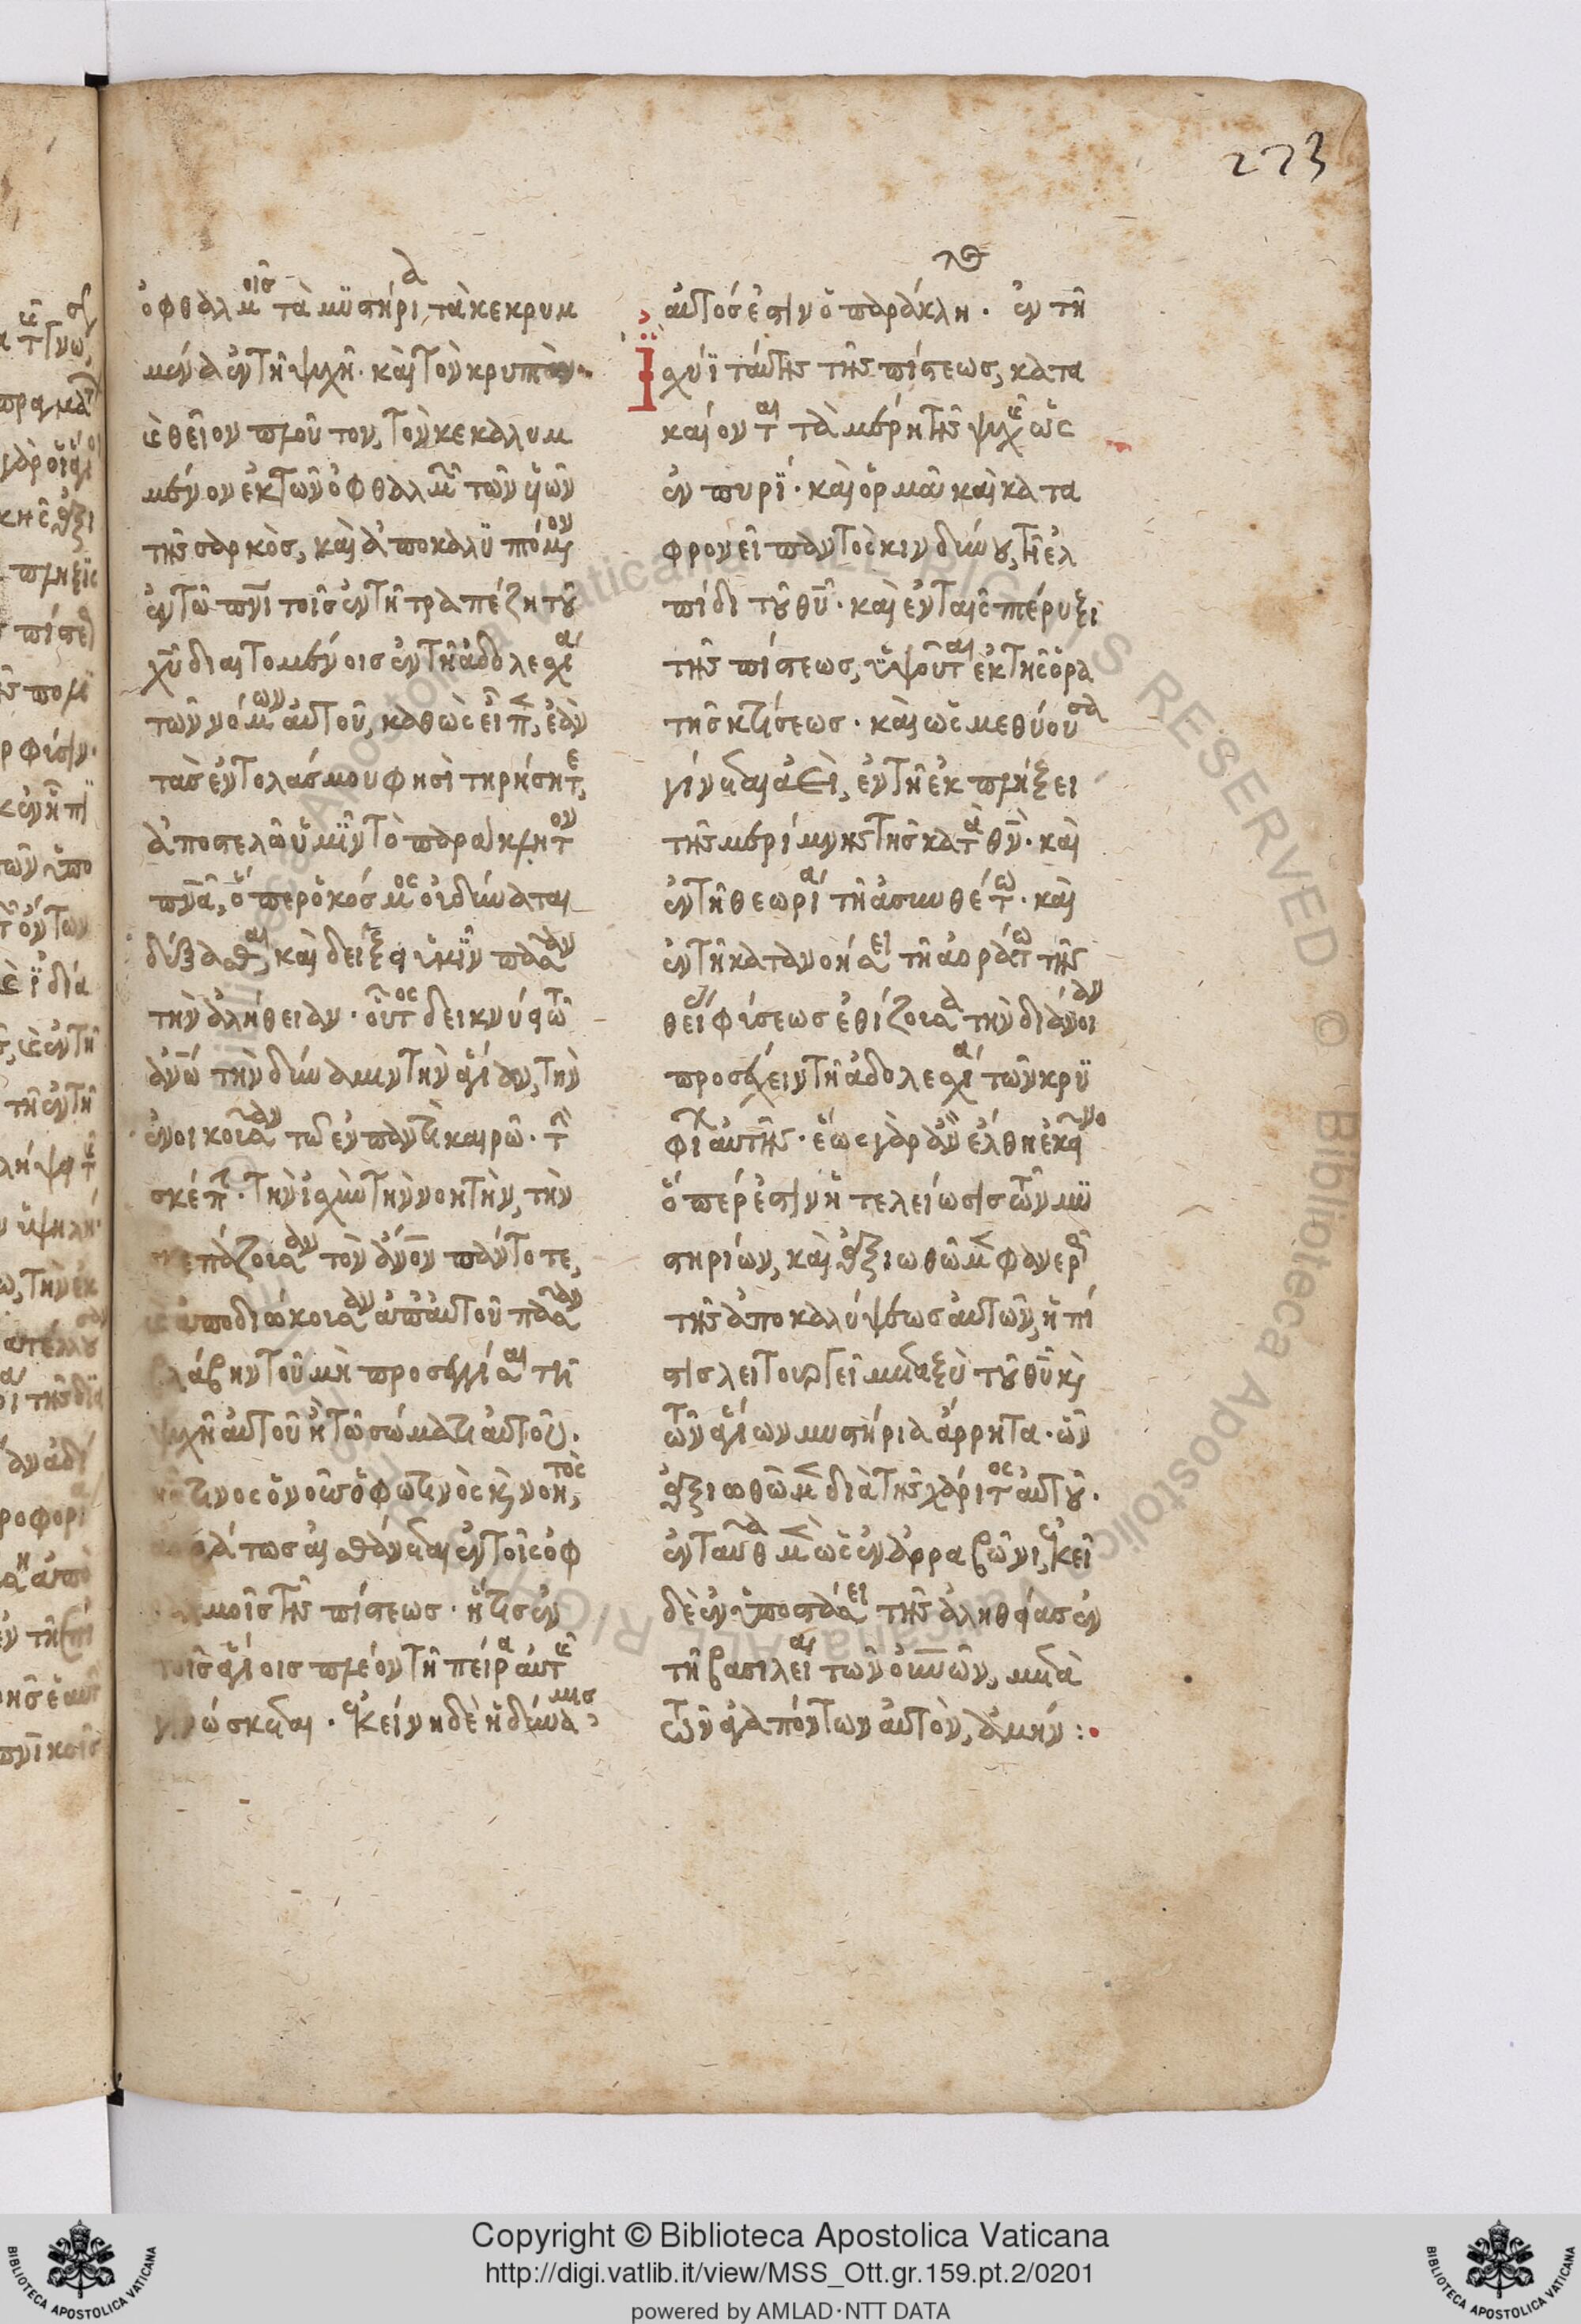 273
ὀφθαλμοῖς τὰ μυστήρια τὰ κεκρυμ
μένα ἐν τῇ ψυχῇ· καὶ τὸν κρυπτὸν
θεῖον πλοῦτον, τὸν κεκαλυμ
μένον ἐκ τῶν ὀφθαλμῶν τῶν υἱῶν
τῆς σαρκὸς, καὶ ἀποκαλυπτόμενον
ἐν τῷ πνι τοῖς ἐν τῇ τραπέζῃ τοῦ
χυ διαιτομένοις ἐν τῇ ἀδολεσχίᾳ
τῶν νόμων αὐτοῦ, καθὼς εἶπεν, ἐὰν
τὰς ἐντολάς μου φησὶ τηρήσητε,
ἀποστελῶ ὑμῖν τὸ παράκλητον
πνα, ὅπερ ὁ κόσμος οὐ δύναται
δέξασθαι, καὶ δείξει ὑμῖν πᾶσαν
τὴν ἀλήθειαν· οὗτος δεικνύει τῷ
ἀνω τὴν δύναμιν τὴν ἁγίαν, τὴν
ἐνοικοῦσαν τῷ ἐν παντὶ καιρῷ· τὴν
σκέπην· τὴν ἰσχὺν τὴν νοητὴν, τὴν
σκεπάζουσαν τὸν ἀνον πάντοτε,
καὶ ἀποδιώκουσαν ἀπ' αὐτοῦ πᾶσαν
βλάβην τοῦ μὴ προσεγγίσαι τῇ
ψυχῇ αὐτοῦ ἢ τῷ σώματι αὐτοῦ·
ἥτινος ὁ νοῦς ὁ φωτινὸς καὶ νοητὸς,
ἀοράτως αἰσθάνεται ἐν τοῖς ὀφ
θαλμοῖς τῆς πίστεως· ἥτις ἐν
τοῖς ἁγίοις πλέον τῇ πείρᾳ αὐτῆς
γινώσκεται· ἐκείνη δὲ ἡ δύναμις
αὐτός ἐστιν ὁ παράκλη· ἐν τῇ
ἰσχύϊ ταύτης τῆς πίστεως, κατα
καίονται τὰ μέρη τῆς ψυχῆς ὡς
ἐν πυρί· καὶ ὁρμᾷ καὶ κατα
φρονεῖ παντὸς κινδύνου, τῇ ἐλ
πίδι τοῦ θυ· καὶ ἐν ταῖς πτέρυξι
τῆς πίστεως, ὑψοῦται ἐκ τῆς ὁρα
τῆς κτίσεως· καὶ ὡς μεθύουσα
γίνεται ἀεὶ, ἐν τῇ ἐκπλήξει
τῆς μερίμνης τῆς κατὰ θν· καὶ
ἐν τῇ θεωρίᾳ τῇ ἀσυνθέτῳ· καὶ
ἐν τῇ κατανοήσει τῇ ἀοράτῳ τῆς
θείας φύσεως ἐθίζουσα τὴν διάνοιαν
προσέχειν τῇ ἀδολεσχίᾳ τῶν κρυ
φίων αὐτῆς· ἕως γὰρ ἂν ἔλθῃ ἐκεῖνο
ὅπέρ ἐστιν ἡ τελείωσις τῶν μυ
στηρίων, καὶ ἀξιωθῶμεν φανερῶς
τῆς ἀποκαλύψεως αὐτῶν, ἡ πί
στις λειτουργεῖ μεταξὺ τοῦ θυ καὶ
τῶν ἁγίων μυστήρια ἄρρητα· ὧν
ἀξιωθῶμεν διὰ τῆς χάριτος αὐτοῦ·
ἐνταῦθα μὲν ὡς ἐν ἀρραβῶνι, ἐκεῖ
δὲ ἐν ὑποστάσει τῆς ἀληθείας ἐν
τῇ βασιλείᾳ τῶν οὐνῶν, μετὰ
τῶν ἀγαπόντων αὐτὸν, ἀμήν:
Copyright © Biblioteca Apostolica Vaticana
http://digi.vatlib.it/view/MSS_Ott.gr.159.pt.2/0201
powered by AMLAD·NTT DATA